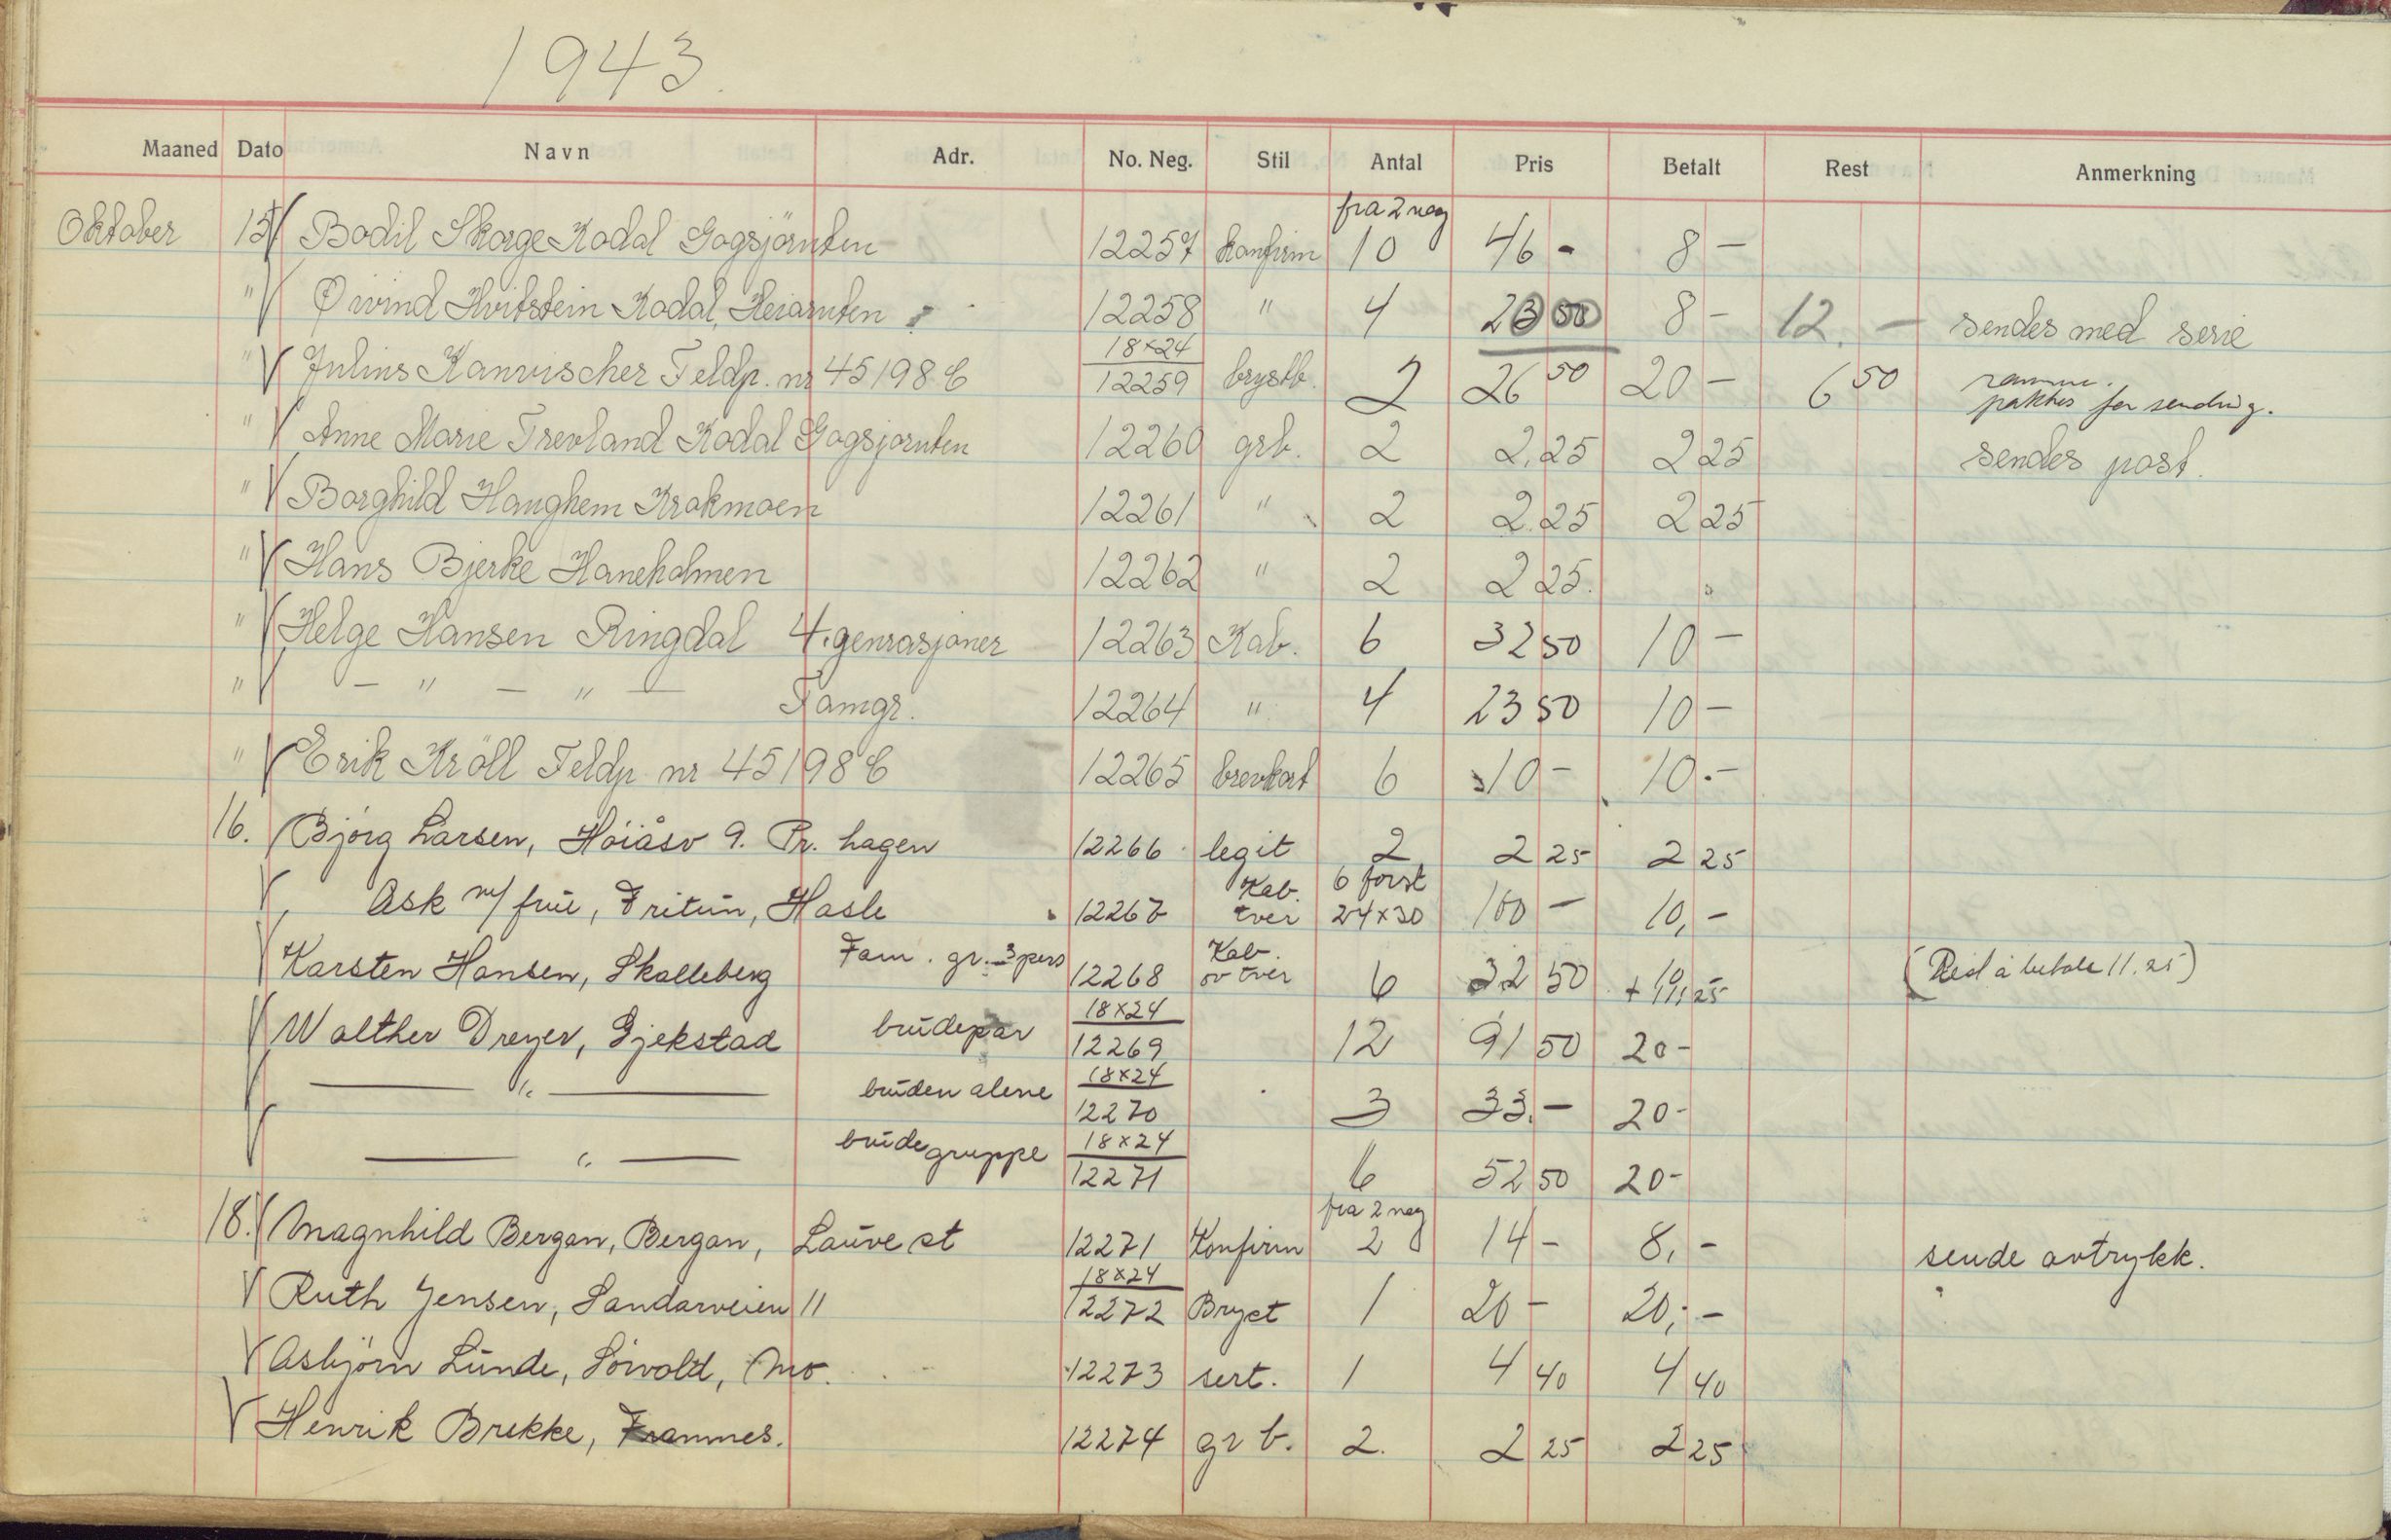 1943.
Maaned Dato Navn Adr. No. Neg. Stil Antal Pris Betalt Rest Anmerkning
fra 2 neg
Oktober 15 Bodil Skorge Kodal Gogsjöruten 12257 konfirm 10 46 - 8 -
" Øivind Hvitstein Kodal, Heiaruten 12258 " 4 8 - 12. - sendes med serie
18x24
" Julius Kanvischer Feldp. nr 45198 C 12259 brystb. 2 26 50 20 - 6 50 ramme. pakkes for sending.
" Anne Marie Trevland Kodal Gogsjoruten 12260 grb. 2 2.25 2 25 sendes post.
" Borghild Haughem Krokmoen 12261 " 2 2.25 2 25
" Hans Bjerke Haneholmen 12262 " 2 2 25. "
" Helge Hansen Ringdal 4. genrasjoner 12263 Kab. 6 32 50 10 -
" - " - " - Famgr. 12264 " 4 23 50 10 -
" Erik Kröll Feldp nr 45198 C 12265 brevkort 6 10 - 10.-
16. Bjórg Larsen, Hóiåsv 9. Pr. hagen 12266 legit 2 2 25 2 25
Kab. 6 först
Ask m/ frue, Fritun, Hasle 12267 tver 24x30 100 - 10,-
Fam. gr. 3 pers Kab.
Karsten Hansen, Skalleberg 12268 ov tver 6 32 50 10 + 11,25 (Rest å betale 11.25)
18x24
Walther Dreyer, Gjekstad brudepar 12269 12 91 50 20-
18x24
— " — bruden alene 12270 3 33.- 20-
18x24
— " — brudegruppe 12271 6 52 50 20-
fra 2 neg
18. Magnhild Bergan, Bergan, Lauve st 12271 Konfirm 2 14 - 8,- sende avtrykk.
18x24
Ruth Jensen, Sandarveien 11 12272 Bryst 1 20 - 20,-
Asbjörn Lunde, Lóivold, Mo. 12273 sert. 1 4 40 4 40
Henrik Brekke, Frammes. 12274 gr b. 2. 2 25 2 25